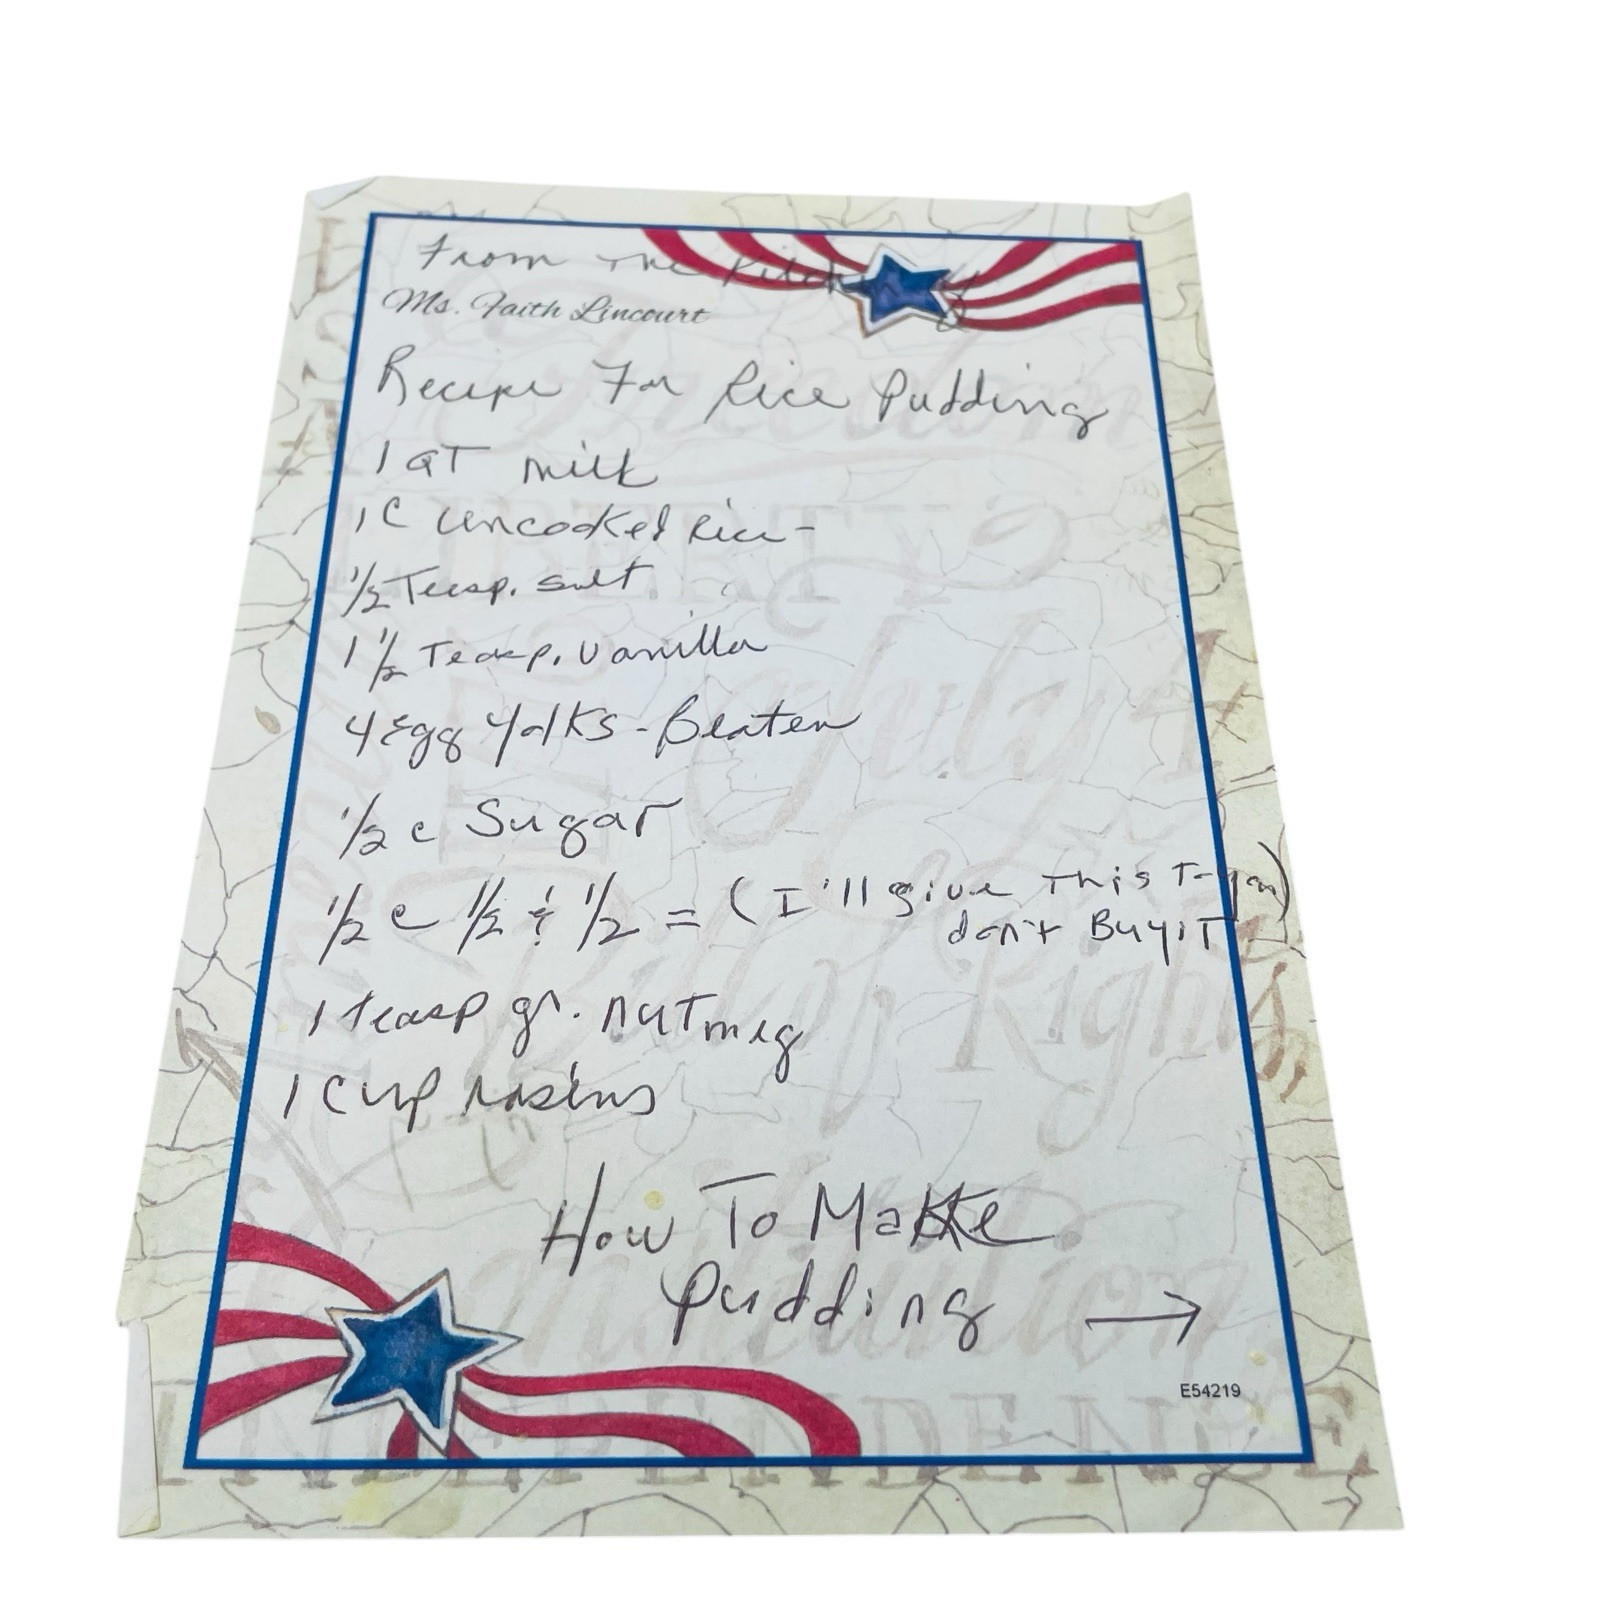 From The Kitchen of
Ms. Faith Lincourt
Recipe For Rice Pudding
1 QT milk
1 C uncooked Rice -
1/2 Teasp. salt
1 1/2 Teasp. Vanilla
4 Egg Yolks - Beaten
1/2 c Sugar
1/2 c 1/2 & 1/2 = (I'll give this T- you)
don't Buy iT
1 teasp gr. nuTmeg
1 Cup raisins
How To Make
Pudding →
E54219
LIBERTY
July 4
Bill of Rights
Constitution
INDEPENDENCE